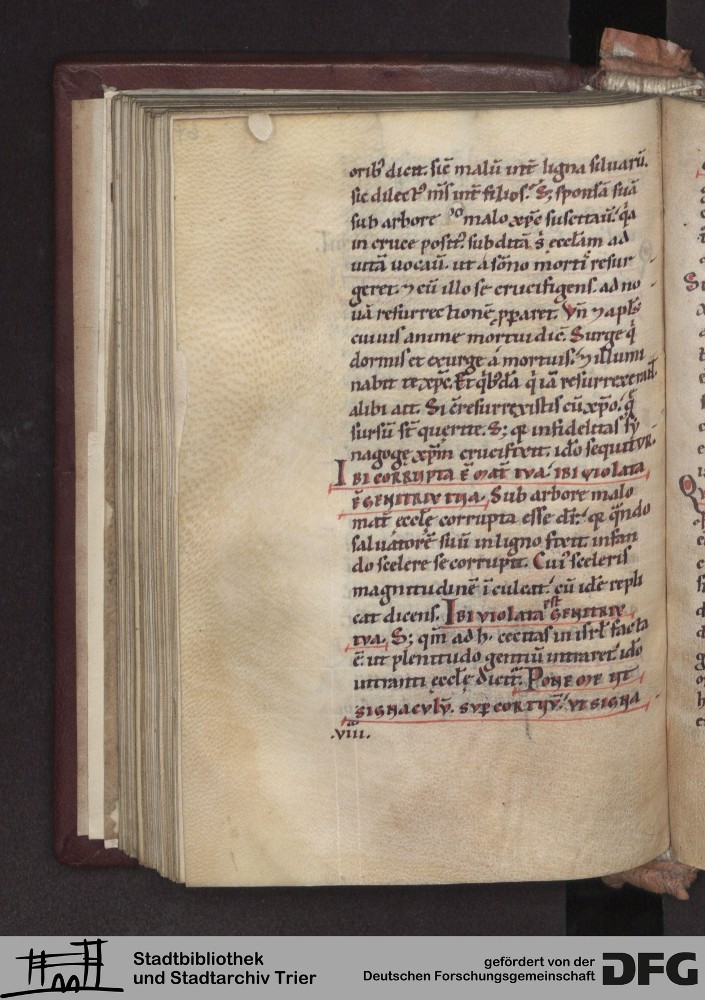 orib; dicit. sic̄ malū int̄ ligna siluarū.
sic dilect᷒ ms̄ int̄ filios. S; sponsā suā
sub arbore malo xp̄c suscitauī. q̇a
in cruce posit᷒ subditā s̄ eccl̄am ad
uitā uocauī. ut a sōno mortī resur
geret. ⁊ cū illo se crucifigens. ad no
uā resurrectionē p̱pararet. Vn̄ ⁊ apl̄s
cuiuis anime mortui dic̄. Surge q̇
dormis et exurge á mortuis. ⁊ illumi
nabit te xp̄c. Et q̇b;dā q̇ iā resurrexerant.
alibi ait. Si c̄resurrexistis cū xp̄o. q̄
sursū st̄ querite. S; qr̄ infidelitas sy
nagogę xp̄m crucifixit. ido sequitur.
IBI CORRUPTA Ē MAT̄ TVA. IBI VIOLATA
Ē GENITRIX TUA. Sub arbore malo
mat̄ eccl̄ę corrupta esse dr̄. qr̄ q̄ndo
saluatorē suū in ligno fixit infan
do scelere se corrupit. Cui᷒ sceleris
magnitudinē īculcat. cū idē repli
cat dicens. IBI VIOLATA est GENITRIX
TUA. S; qm̄ ad h. cecitas in isrl̄ facta
ē. ut plenitudo gentiū intraret. ido
intranti eccl̄ę dicit. PONE ME UT
SIGNACULŪ. SUP̱ COR TUŪ. UT SIGNA
.viii.
Stadtbibliothek
und Stadtarchiv Trier
gefördert von der
Deutschen Forschungsgemeinschaft
DFG